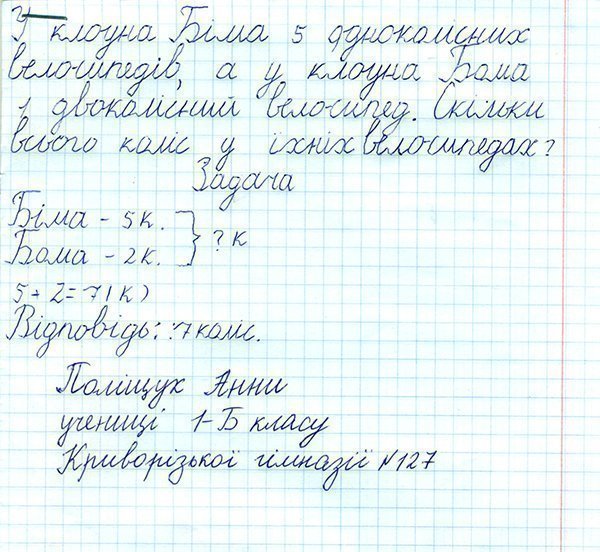 У клоуна Біма 5 однокомісних
велосипедів, а у клоуна Бома
1 двоколісний велосипед. Скільки
всього коліс у їхніх велосипедах?
Задача
Біма - 5 к.
Бома - 2 к. } ? к
5 + 2 = 7 (к)
Відповідь: 7 коліс.
Поліщук Анни
учениці 1-Б класу
Криворізької гімназії №127